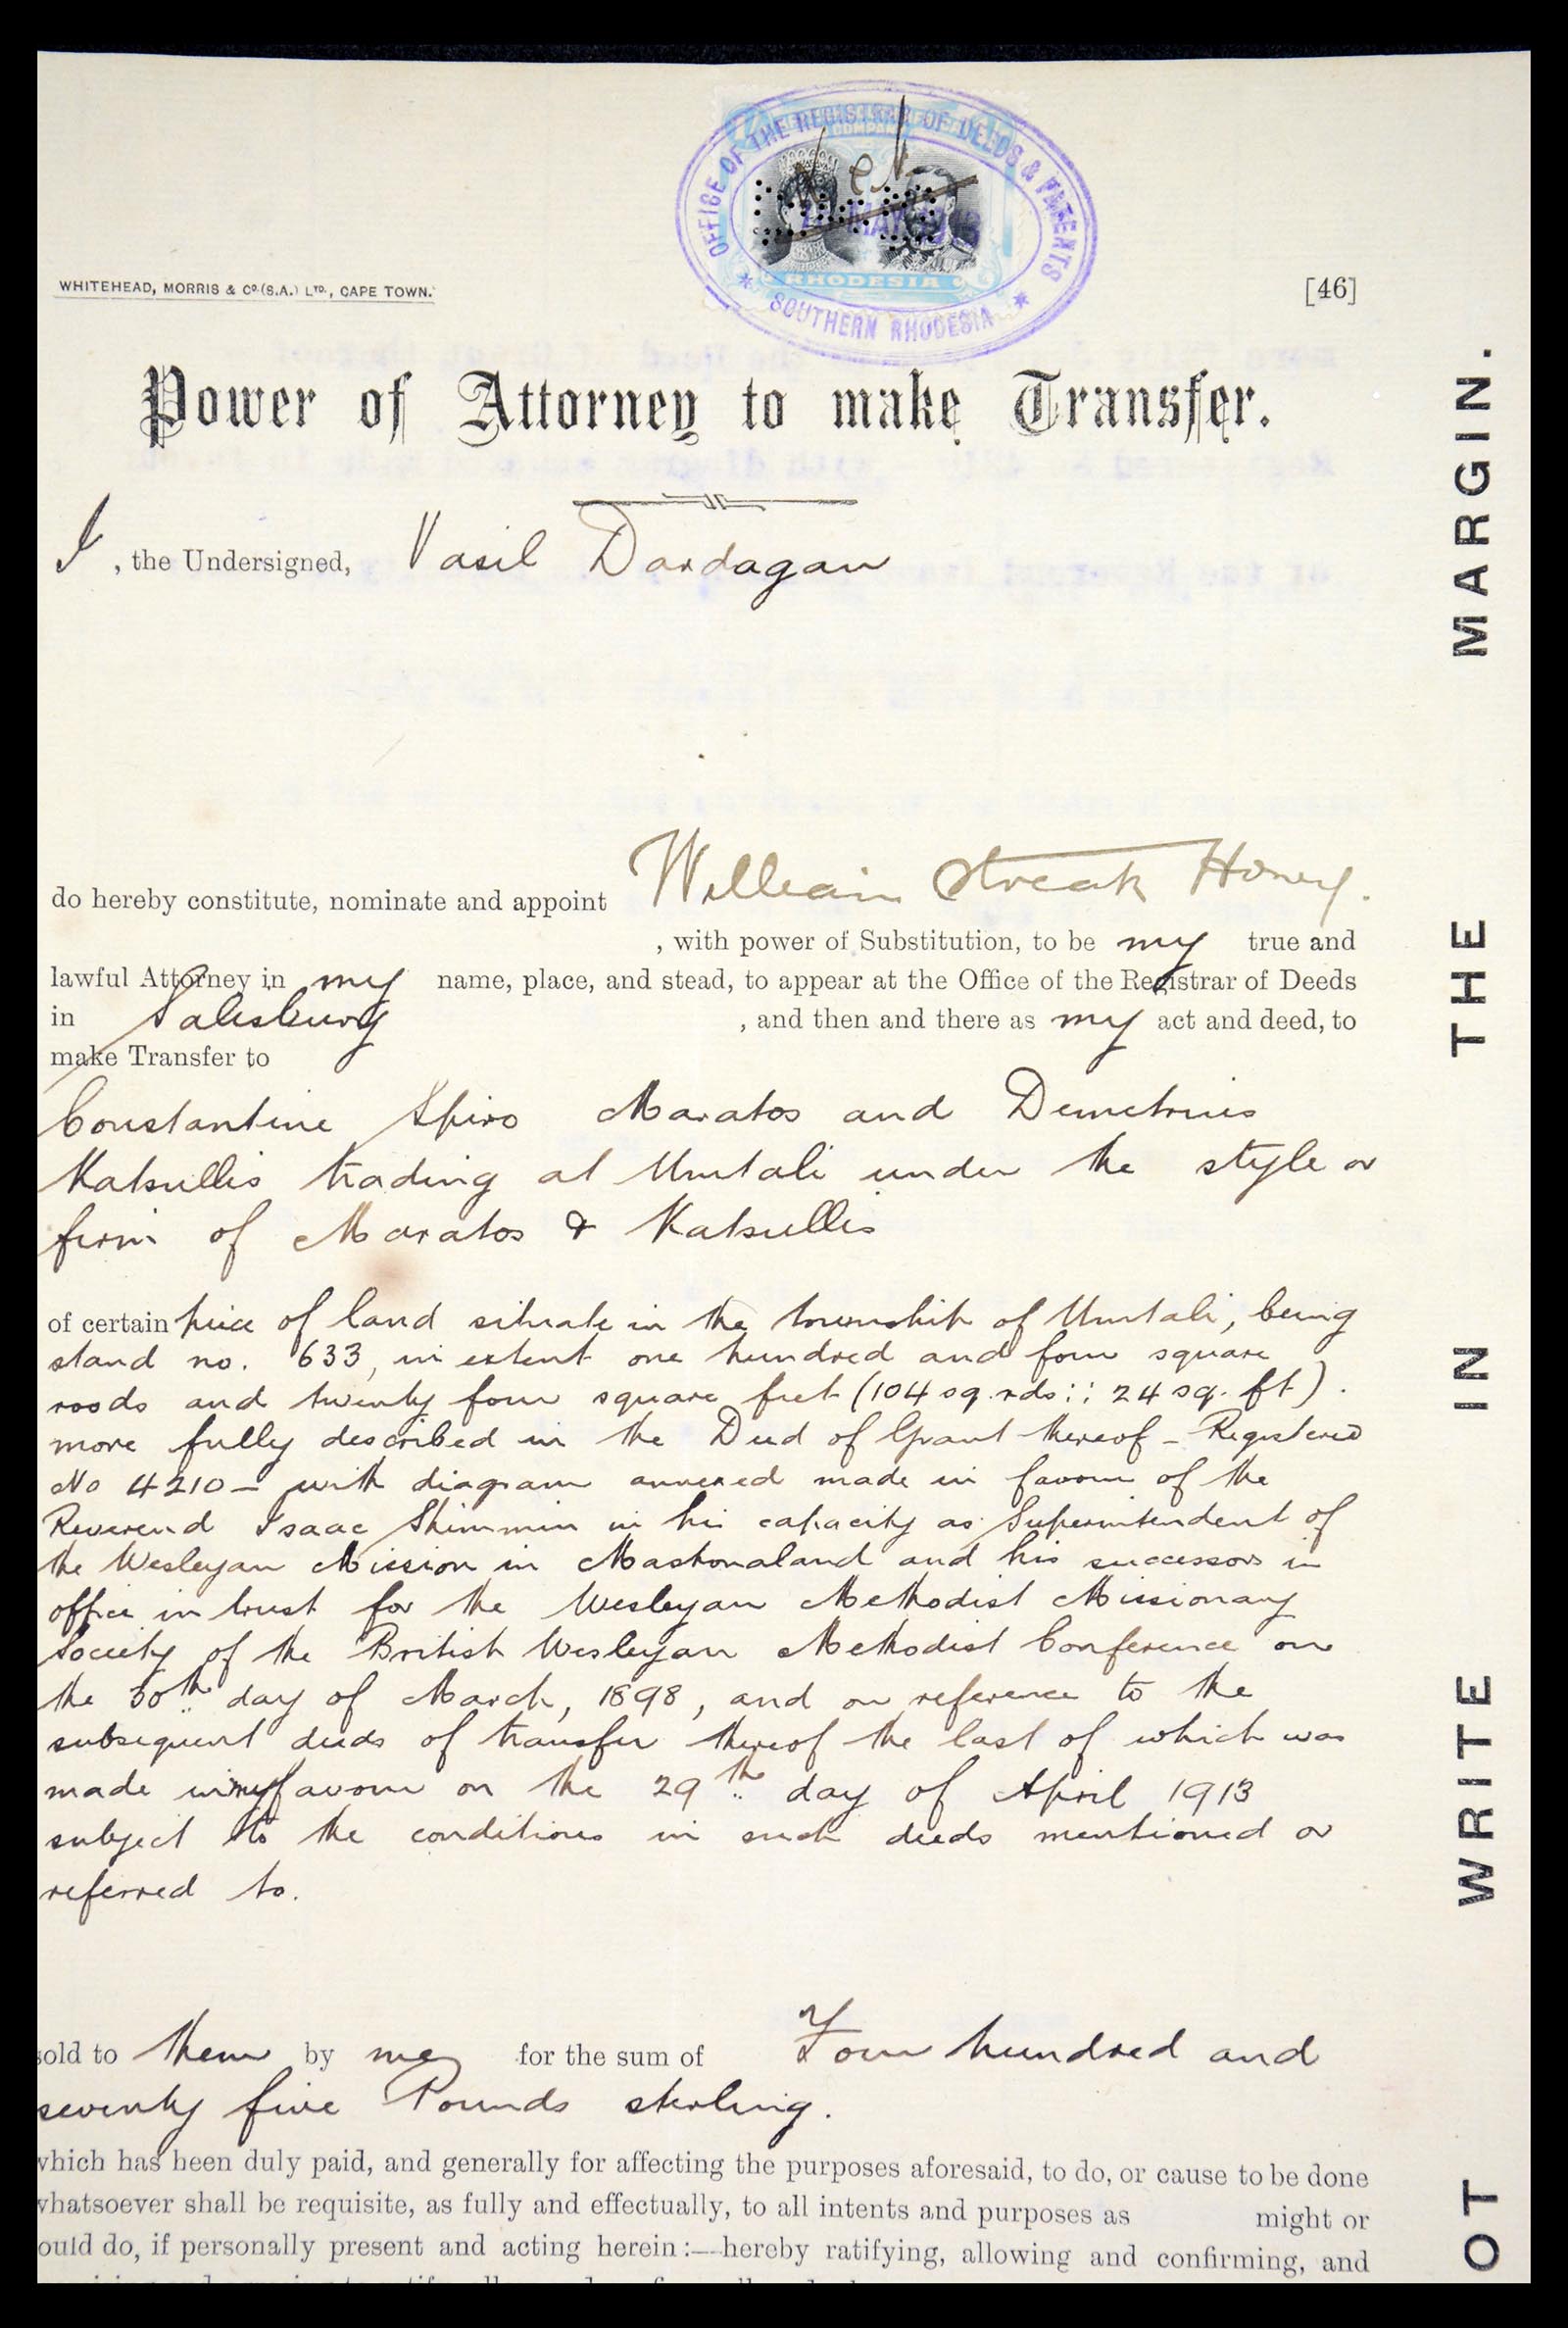 OFFICE OF THE REGISTRAR OF DEEDS & PATENTS
COMPANY
MAY
RHODESIA
SOUTHERN RHODESIA
WHITEHEAD, MORRIS & Co. (S.A.) LTD., CAPE TOWN.
[46]
Power of Attorney to make Transfer.
I, the Undersigned, Vasil Dardagan
do hereby constitute, nominate and appoint William Streak Honey.
, with power of Substitution, to be my true and
lawful Attorney in my name, place, and stead, to appear at the Office of the Registrar of Deeds
in Salisbury, and then and there as my act and deed, to
make Transfer to
Constantine Spiro Maratos and Demetrius
Katsullis trading at Umtali under the style or
firm of Maratos & Katsullis
of certain piece of land situate in the township of Umtali, being
stand no. 633, in extent one hundred and four square
roods and twenty four square feet (104 sq. rds :: 24 sq. ft).
more fully described in the Deed of Grant thereof - Registered
No 4210 - with diagram annexed made in favour of the
Reverend Isaac Shimmin in his capacity as Superintendent of
the Wesleyan Mission in Mashonaland and his successors in
office in trust for the Wesleyan Methodist Missionary
Society of the British Wesleyan Methodist Conference on
the 30th day of March, 1898, and on reference to the
subsequent deeds of transfer thereof the last of which was
made in my favour on the 29th day of April 1913
subject to the conditions in such deeds mentioned or
referred to.
sold to them by me for the sum of Four hundred and
seventy five Pounds sterling.
which has been duly paid, and generally for affecting the purposes aforesaid, to do, or cause to be done
whatsoever shall be requisite, as fully and effectually, to all intents and purposes as might or
ould do, if personally present and acting herein:—hereby ratifying, allowing and confirming, and
OT WRITE IN THE MARGIN.